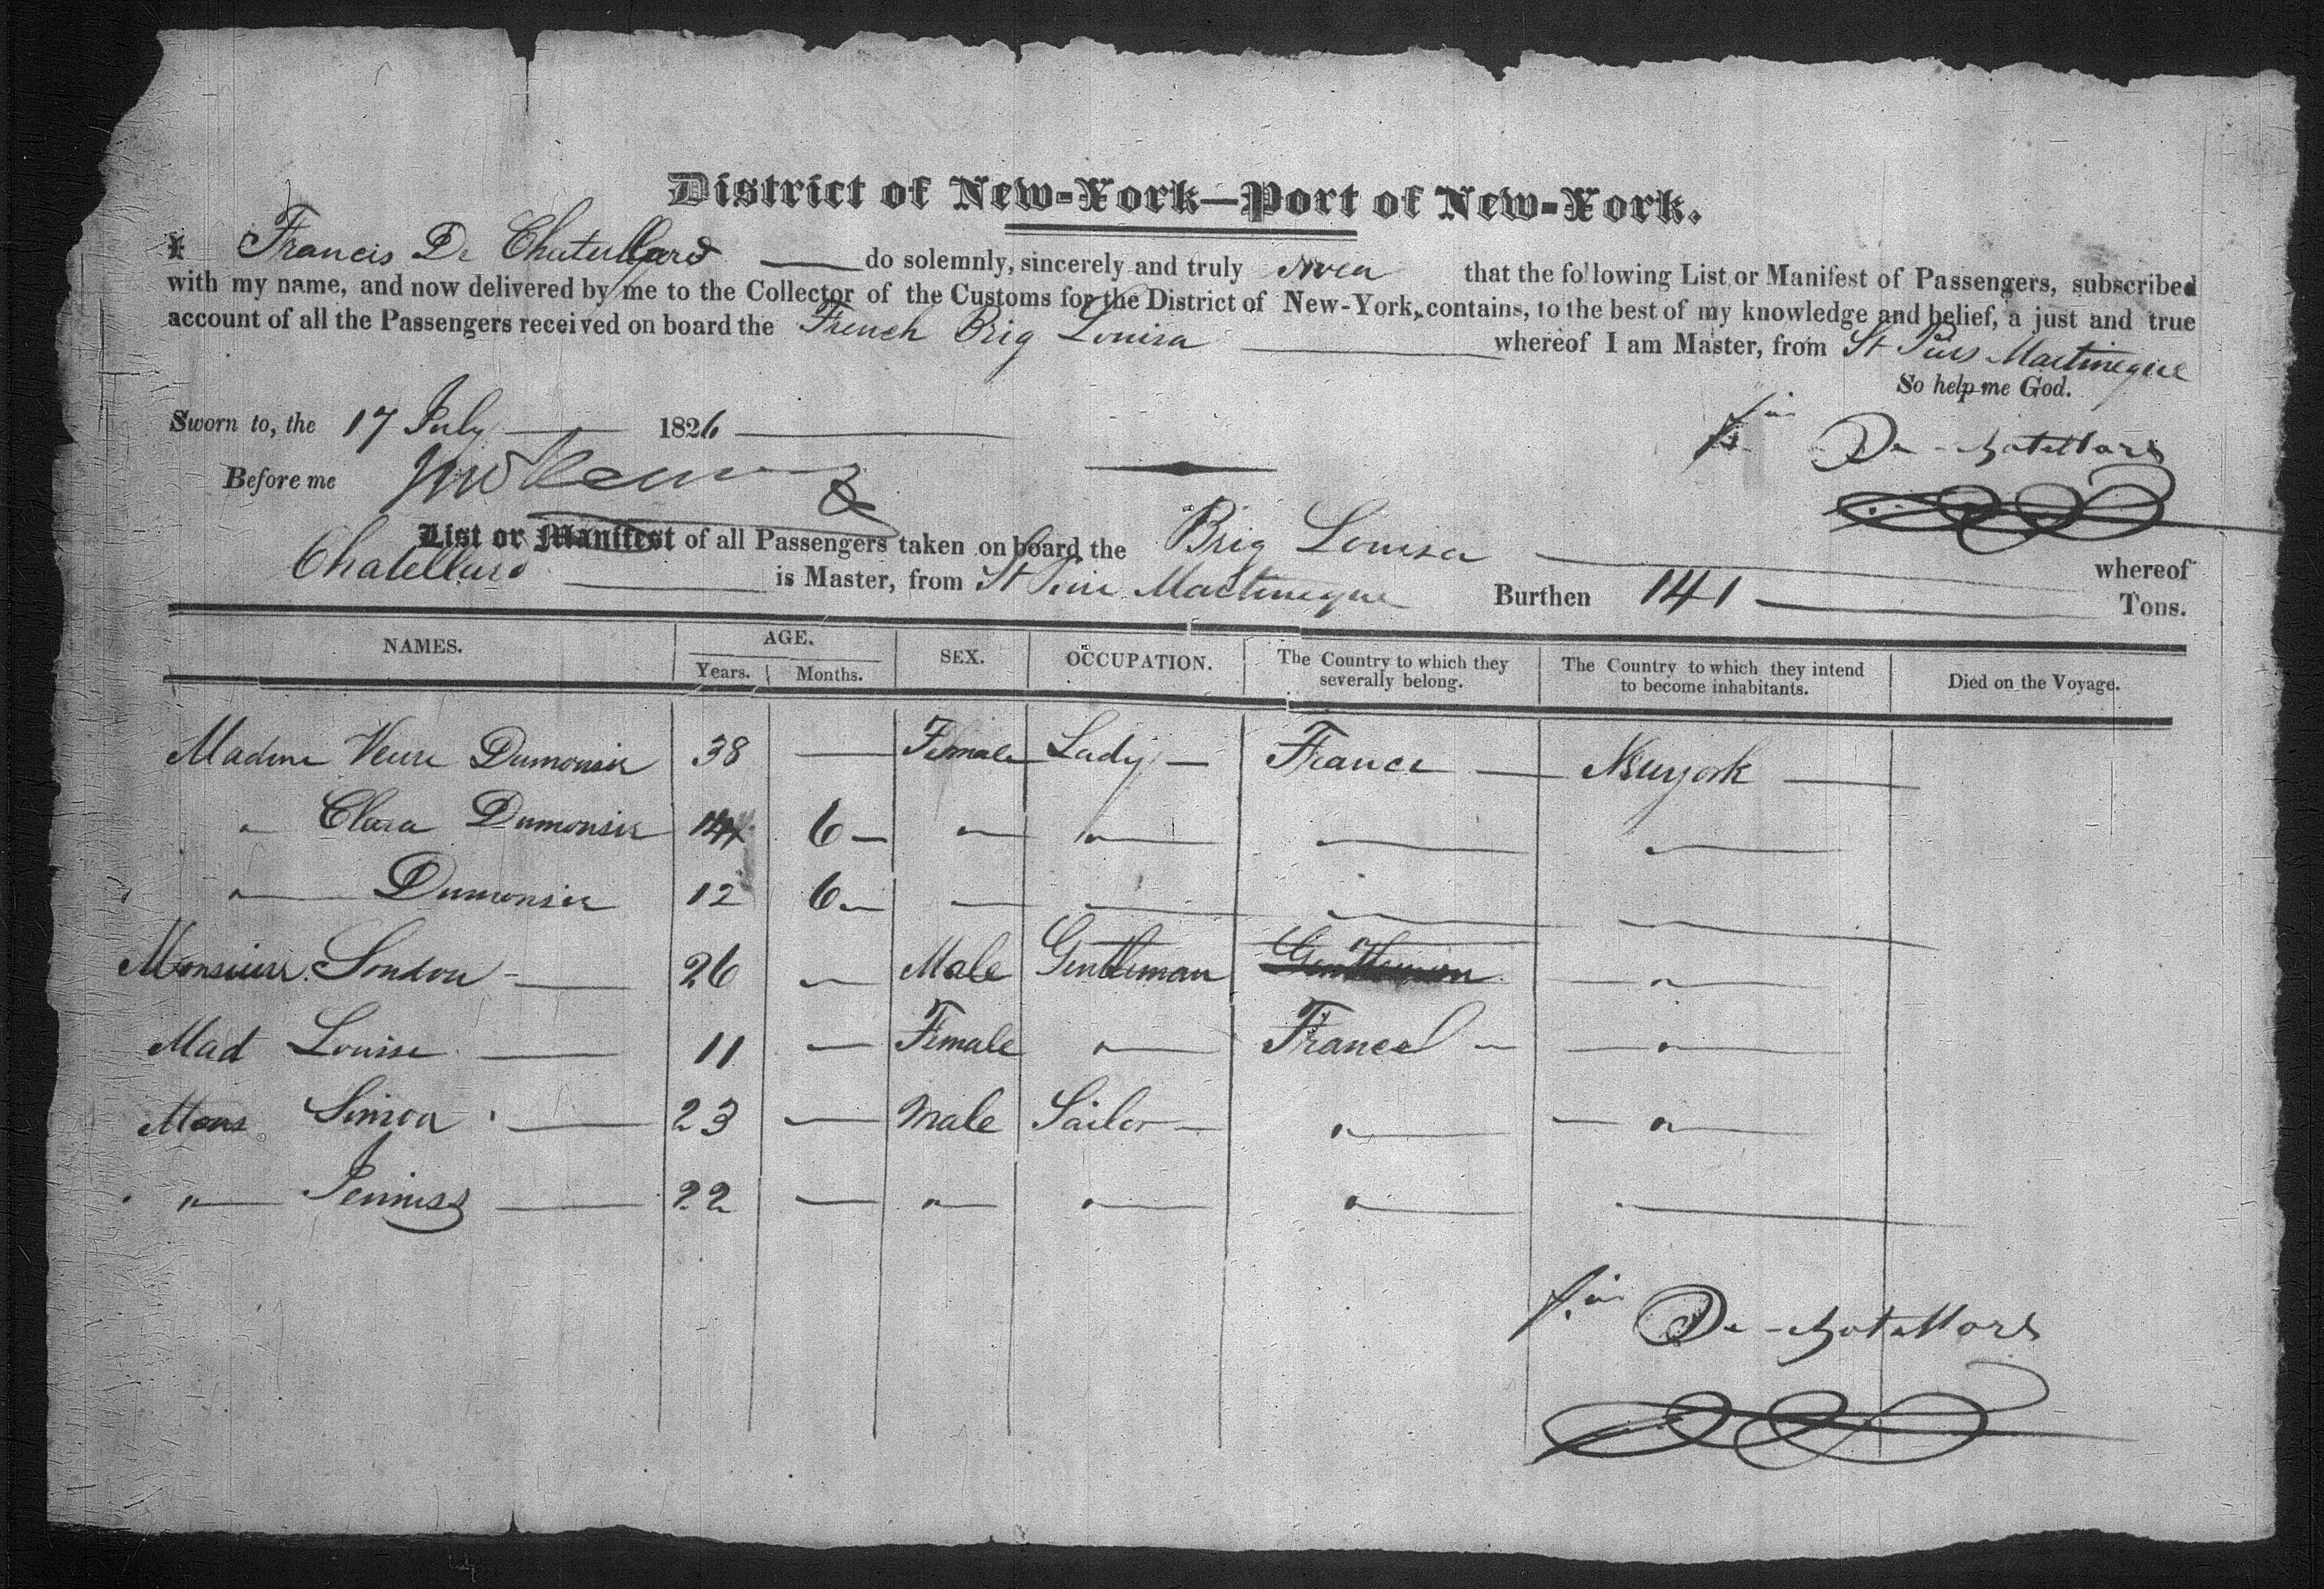 District of New-York—Port of New-York.
I Francis De Chatellard do solemnly, sincerely and truly swear that the following List or Manifest of Passengers, subscribed
with my name, and now delivered by me to the Collector of the Customs for the District of New-York, contains, to the best of my knowledge and belief, a just and true
account of all the Passengers received on board the French Brig Louisa whereof I am Master, from St Martineque
So help me God.
Sworn to, the 17 July 1826
De Chatellard
Before me
List or Manifest of all Passengers taken on board the Brig Louisa whereof
Chatellard is Master, from St Martineque Burthen 141 Tons.
NAMES. AGE. SEX. OCCUPATION. The Country to which they severally belong. The Country to which they intend to become inhabitants. Died on the Voyage.
Years. Months.
Madme Dumonsir 38 — Female Lady — France — Newyork —
" Clara Dumonsir 14 6 — " "
" Dumonsir 12 6 —
Monsieur 26 " Male Gentleman Gentleman "
Mad Louise 11 — Female " France — "
Mons Simon 23 — Male Sailor — " "
" 22 — " " "
De Chatellard